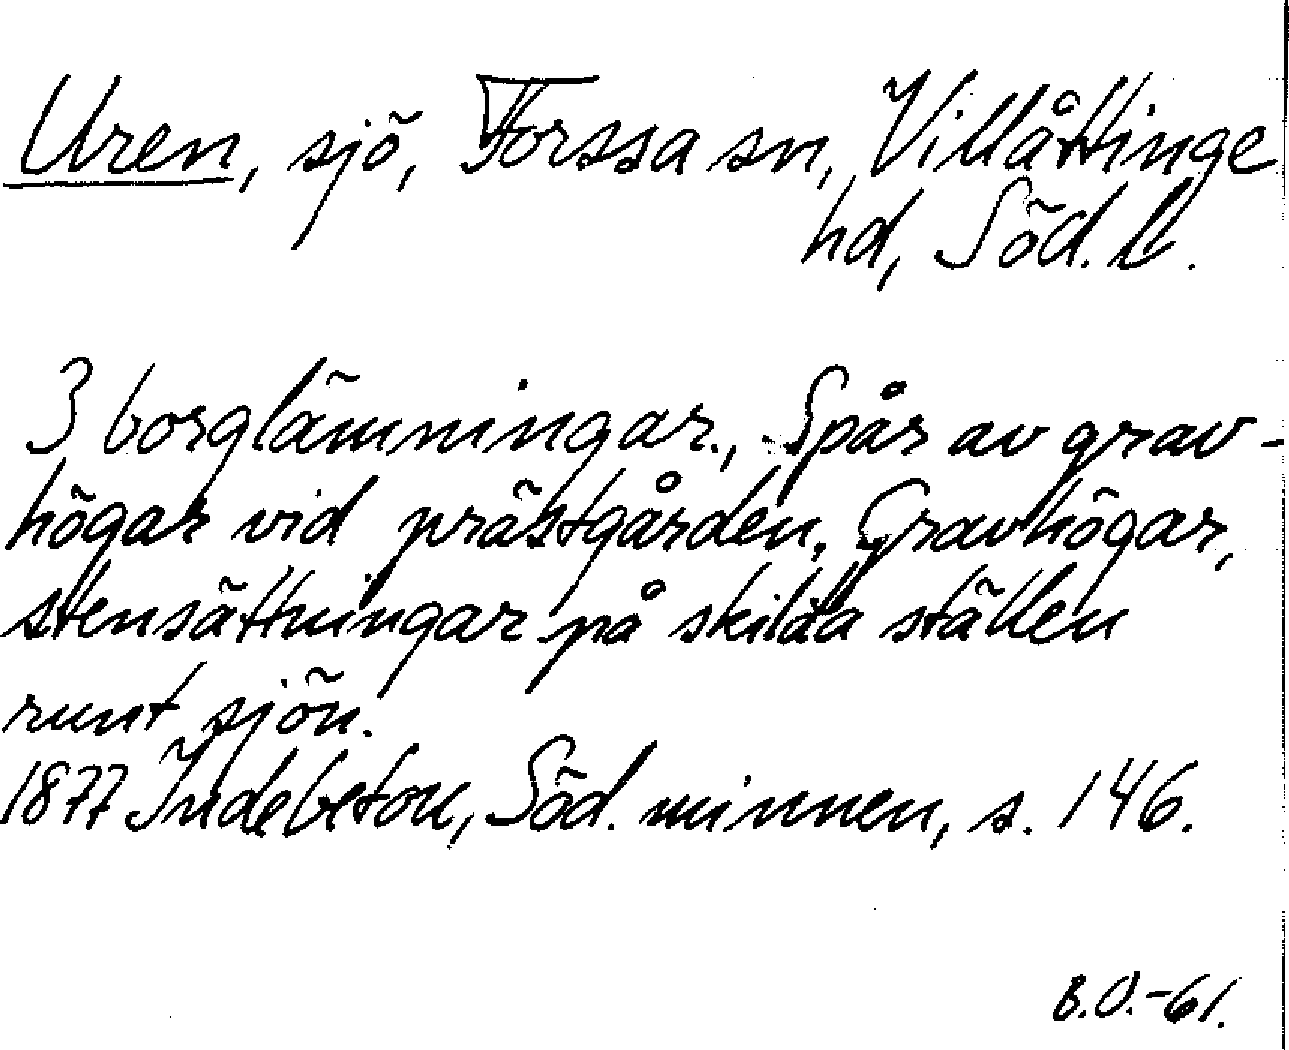 Uren, sjö, Forssa sn, Villåttinge
hd, Söd. l.
3 borglämningar., Spår av grav-
högar vid prästgården. Gravhögar,
stensättningar på skilda ställen
runt sjön.
1877 Indebetou, Söd. minnen, s. 146.
B.O.-61.